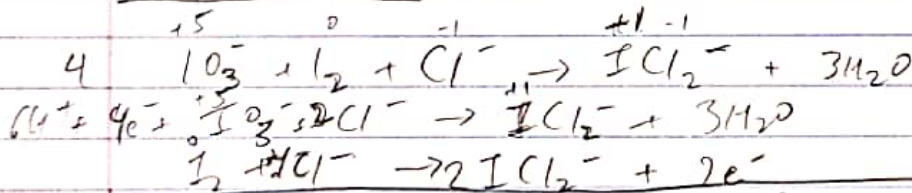 +5 0 -1 +1 -1
4 IO3^- + I2 + Cl^- → ICl2^- + 3H2O
6H^+ + 4e^- + IO3^- + 2Cl^- → ICl2^- + 3H2O
I2 + 4Cl^- → 2ICl2^- + 2e^-